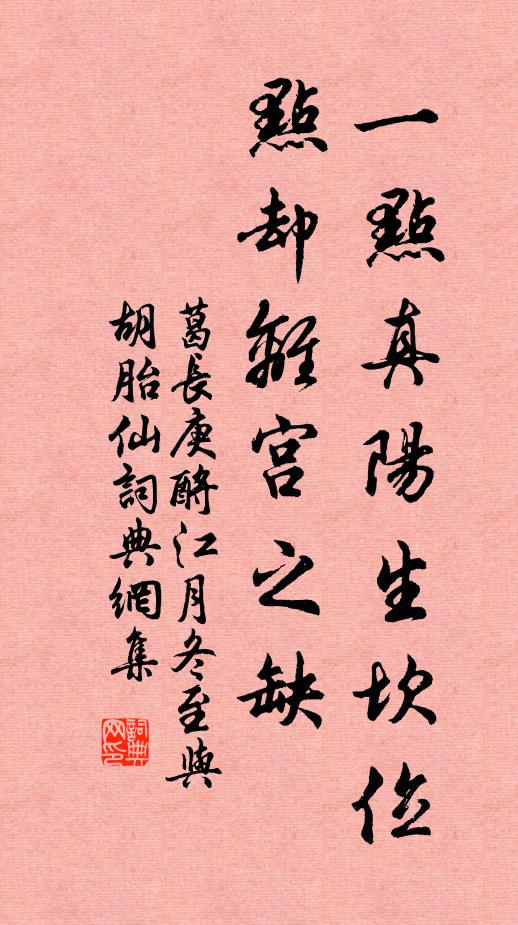 一點真陽生坎位
點却離宮之缺
葛長庚酹江月冬至與
胡胎仙詞典網集
詞典
网印